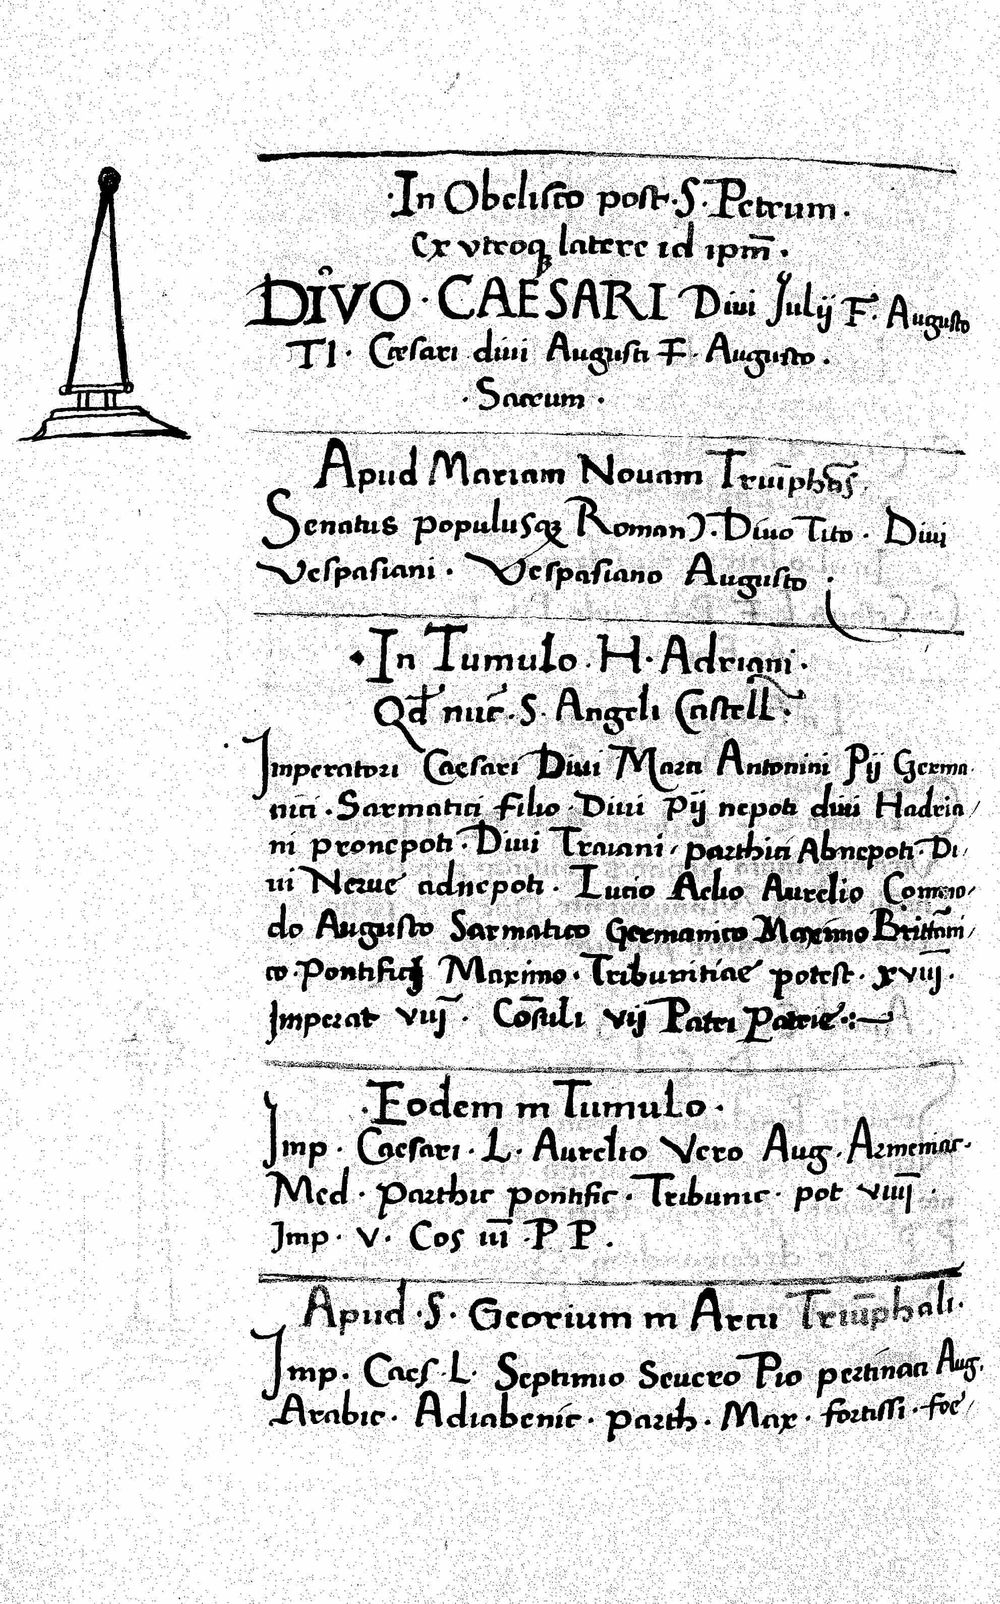 ·In Obelisco post·S·Petrum·
Ex vtroqꝫ latere id ipm̄·
DIVO·CAESARI Diui Julij F·Augusto
TI· Cæsari diui Augusti F·Augusto·
·Sacrum·
Apud Mariam Nouam Triūphās·
Senatus populusqꝫ Roman)·Diuo Tito· Diui
Vespasiani· Vespasiano Augusto·
·In Tumulo·H·Adriani·
Qd̄ nūc·S·Angeli Castell
Imperatori Caesari Diui Marci Antonini Pij Germa
nici·Sarmatici filio·Diui pij nepoti diui Hadria/
ni pronepoti·Diui Traiani/parthici Abnepoti·Di/
ui Nerue adnepoti· Lucio Aelio Aurelio Commo/
do Augusto Sarmatico Germanico Maximo Brittāni/
co·Pontifici Maximo·Tribunitiae potest·xviiij·
Imperat viiij· Cōsuli vij Patri patrie·:
·Eodem in Tumulo·
Imp· Caesari·L·Aurelio Vero Aug·Armeniac·
Med·parthic pontific·Tribunic·pot viiij·
Imp·V·Cos iii·P P·
Apud·S·Georium in Arcu Triūphali·
Imp·Caes·L·Septimio Seuero Pio pertinaci Aug·
Arabic·Adiabenic·parth·Max·fortissi·foe/